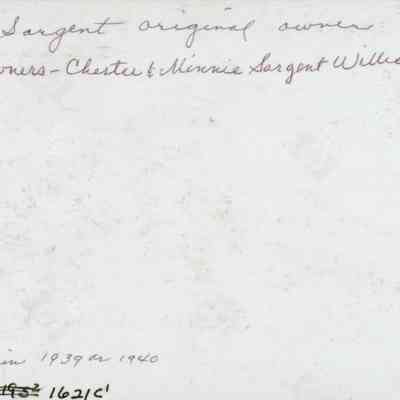 Sargent original owner
wners - Chester & Minnie Sargent Willi
in 1939 or 1940
1952 1621C'